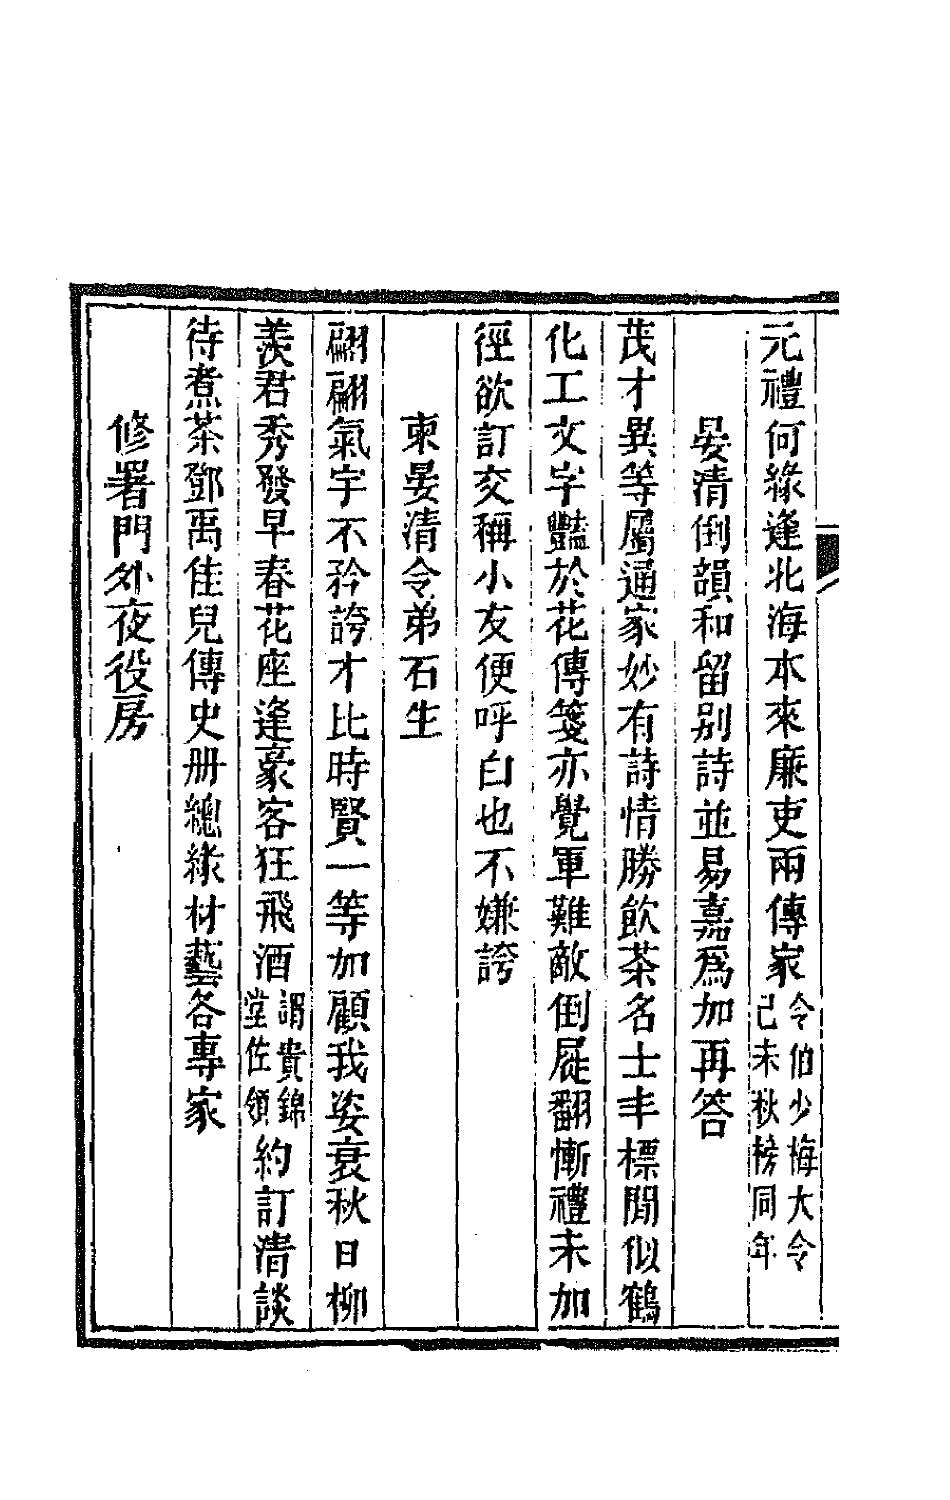 元禮何緣逢北海本來廉吏兩傳家令伯少梅大令己未秋榜同年
晏清倒韻和留别詩並易嘉爲加再答
茂才異等屬通家妙有詩情勝飲茶名士丰標閒似鶴
化工文字豔於花傳箋亦覺軍難敵倒屣翻慚禮未加
徑欲訂交稱小友便呼白也不嫌誇
柬晏清令弟石生
翩翩氣宇不矜誇才比時賢一等加顧我姿衰秋日柳
羨君秀發早春花座逢豪客狂飛酒謂貴錦堂佐領約訂清談
待煮茶鄧禹佳兒傳史册總緣材藝各專家
修署門外夜役房